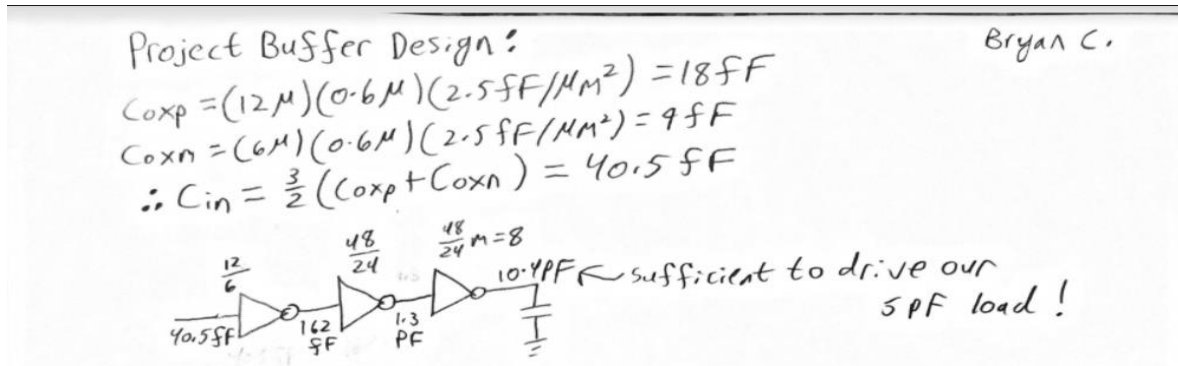 Project Buffer Design:
Bryan C.
Coxp = (12μ)(0.6μ)(2.5fF/μm²) = 18fF
Coxn = (6μ)(0.6μ)(2.5fF/μm²) = 9fF
∴ Cin = 3/2 (Coxp + Coxn) = 40.5fF
12/6
48/24
48/24 m=8
40.5fF
162 fF
1.3 PF
10.4PF ← sufficient to drive our
5pF load!